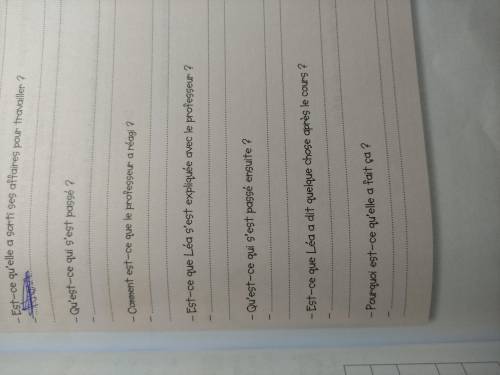 - Est-ce qu'elle a sorti ses affaires pour travailler ?
-
- Qu'est-ce qui s'est passé ?
-
- Comment est-ce que le professeur a réagi ?
-
- Est-ce que Léa s'est expliquée avec le professeur ?
-
- Qu'est-ce qui s'est passé ensuite ?
-
- Est-ce que Léa a dit quelque chose après le cours ?
-
- Pourquoi est-ce qu'elle a fait ça ?
-